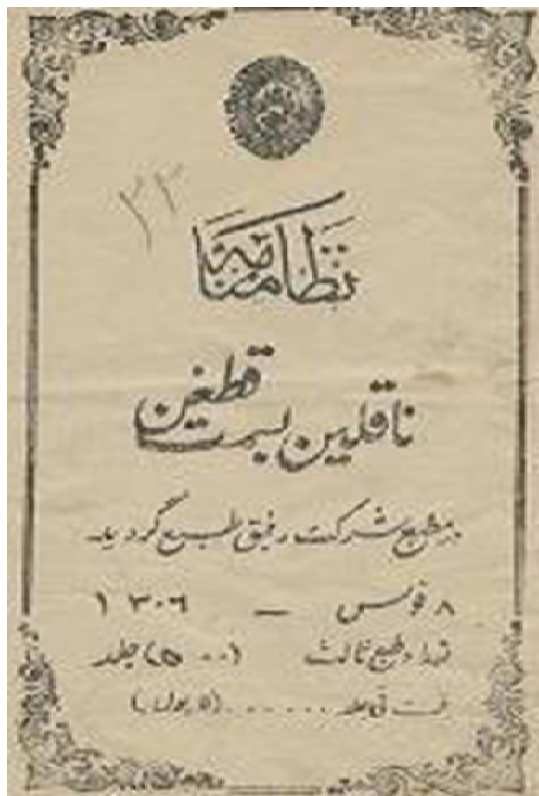 ۲۳
نظامنامه
ناقلین بسمت قطغن
بمطبع شرکت رفیق طبع گردید
۸ قوس — ۱۳۰۶
تعداد طبع ثالث (۵۰۰) جلد
قیمت فی جلد .......